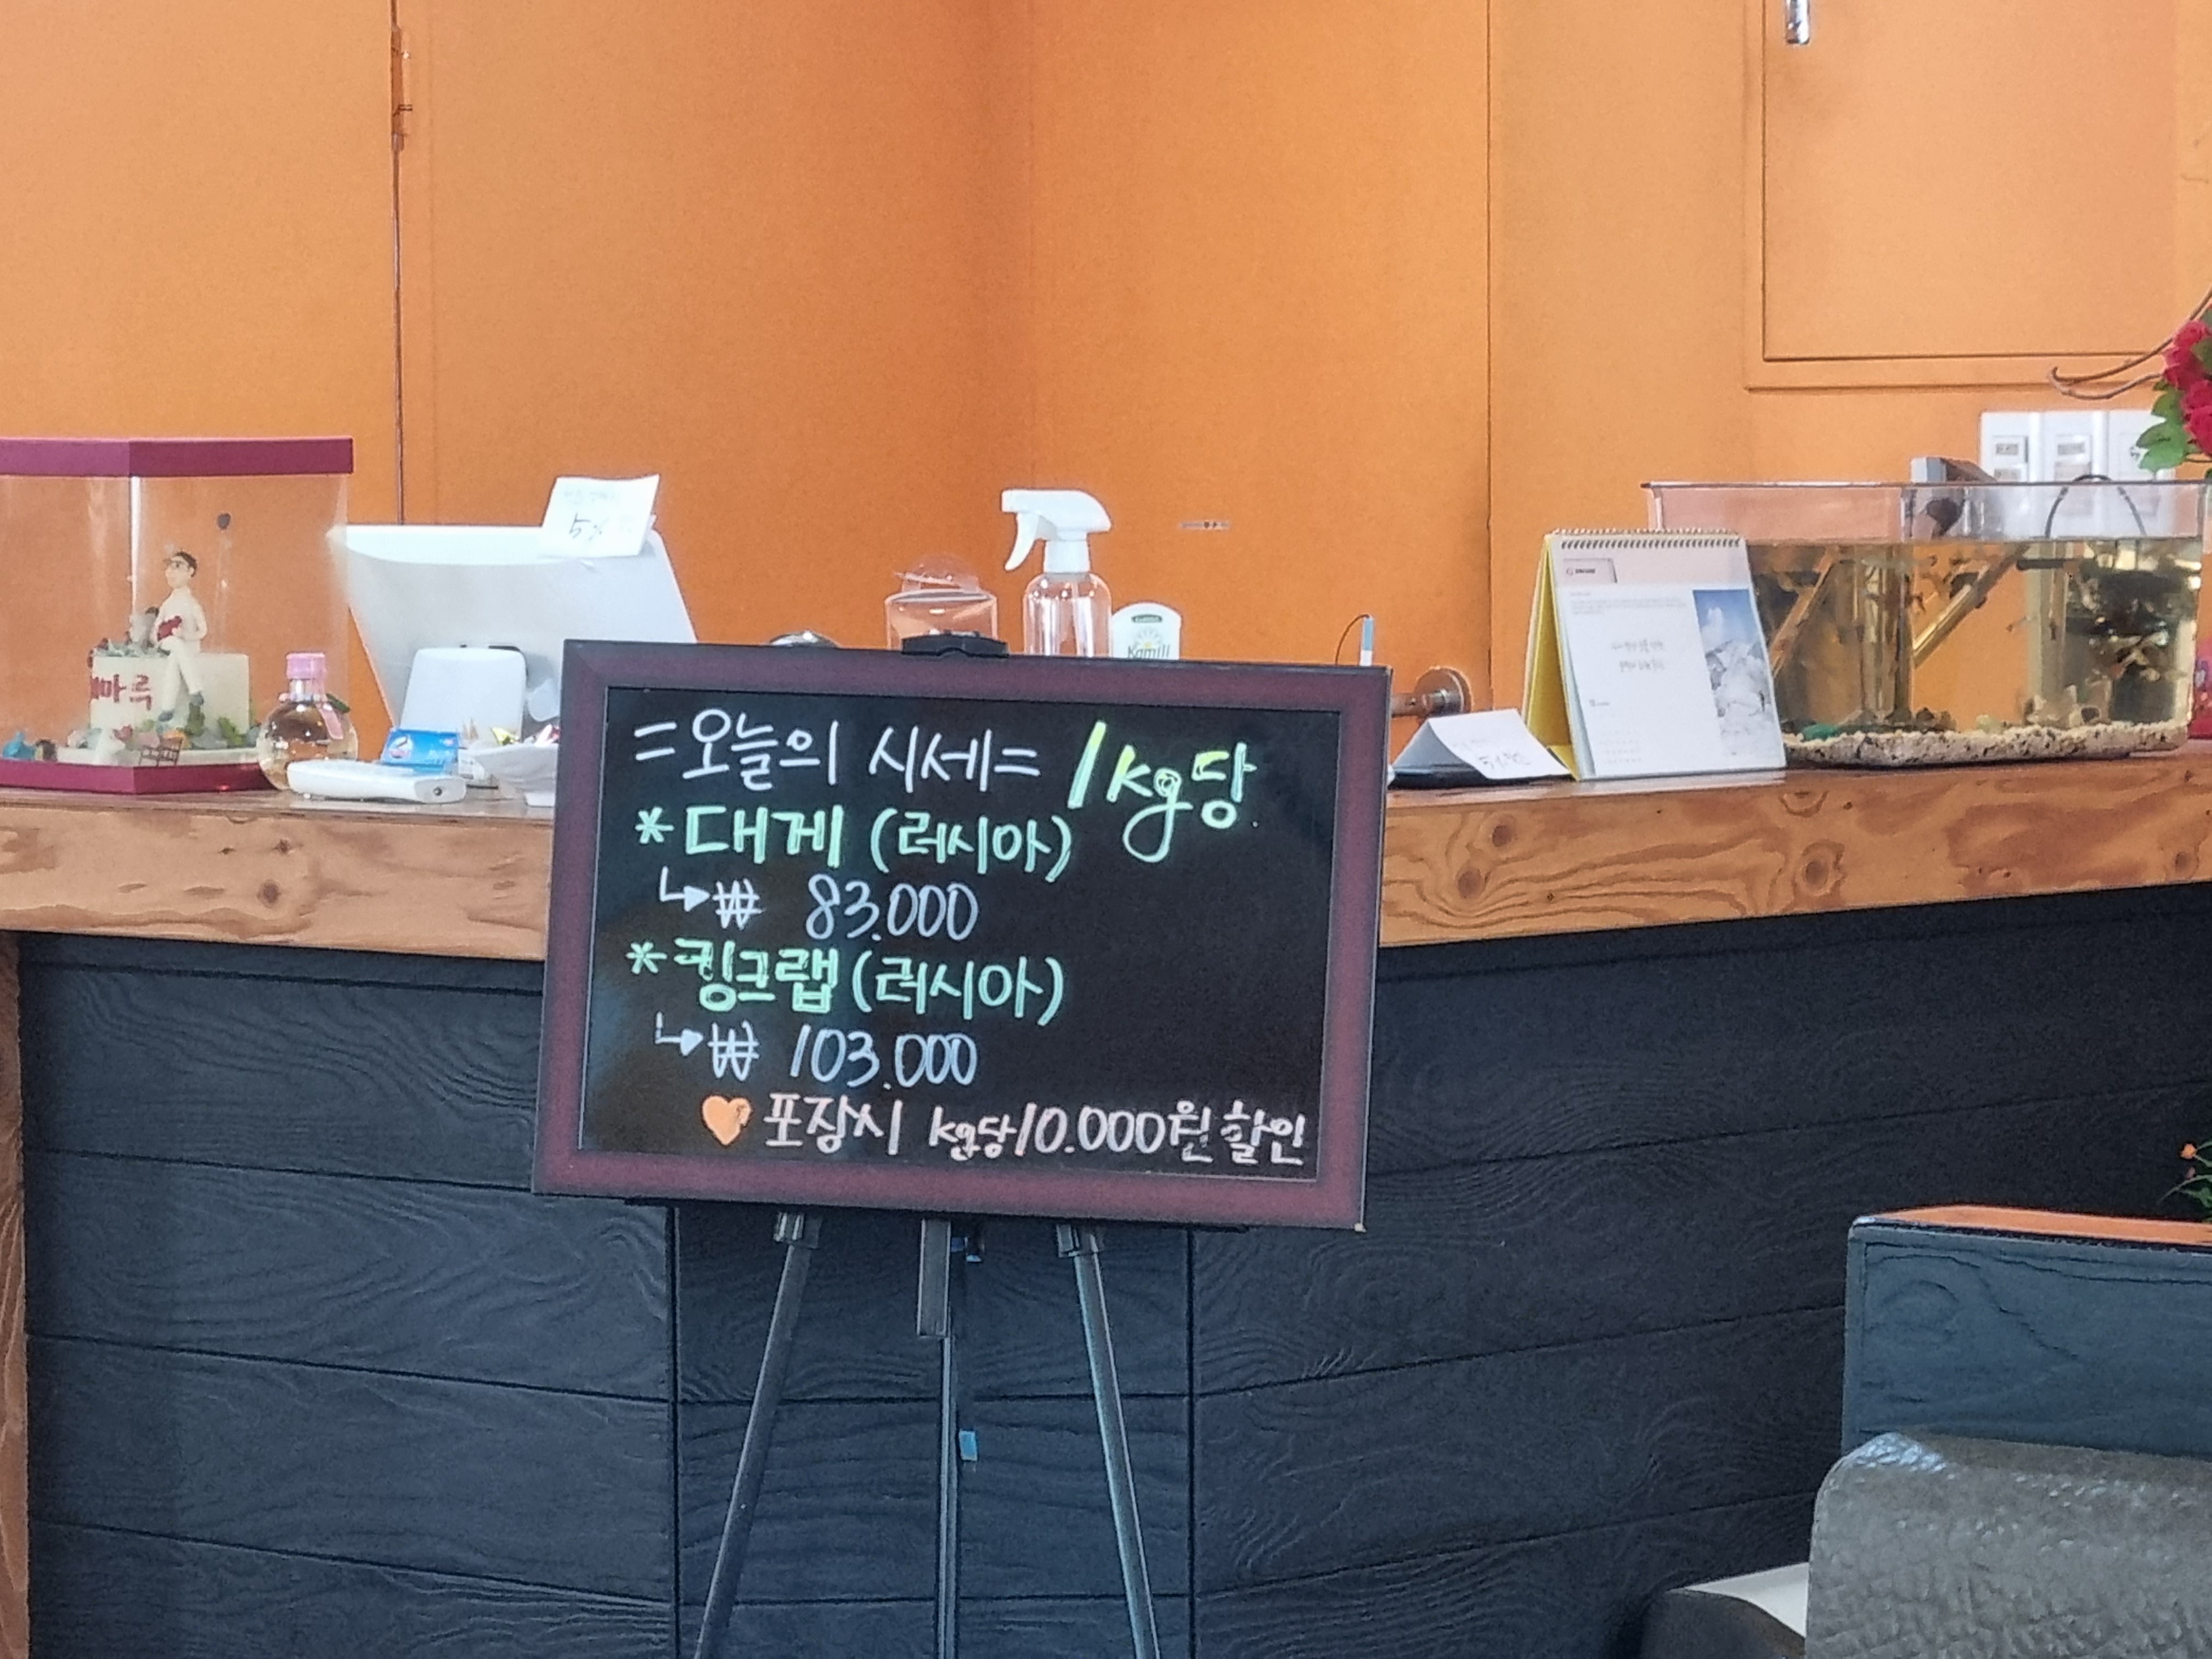 =오늘의 시세= 1kg당
*대게 (러시아)
↳₩ 83.000
*킹크랩 (러시아)
↳₩ 103.000
🧡 포장시 kg당10.000원 할인
Kamill
마루